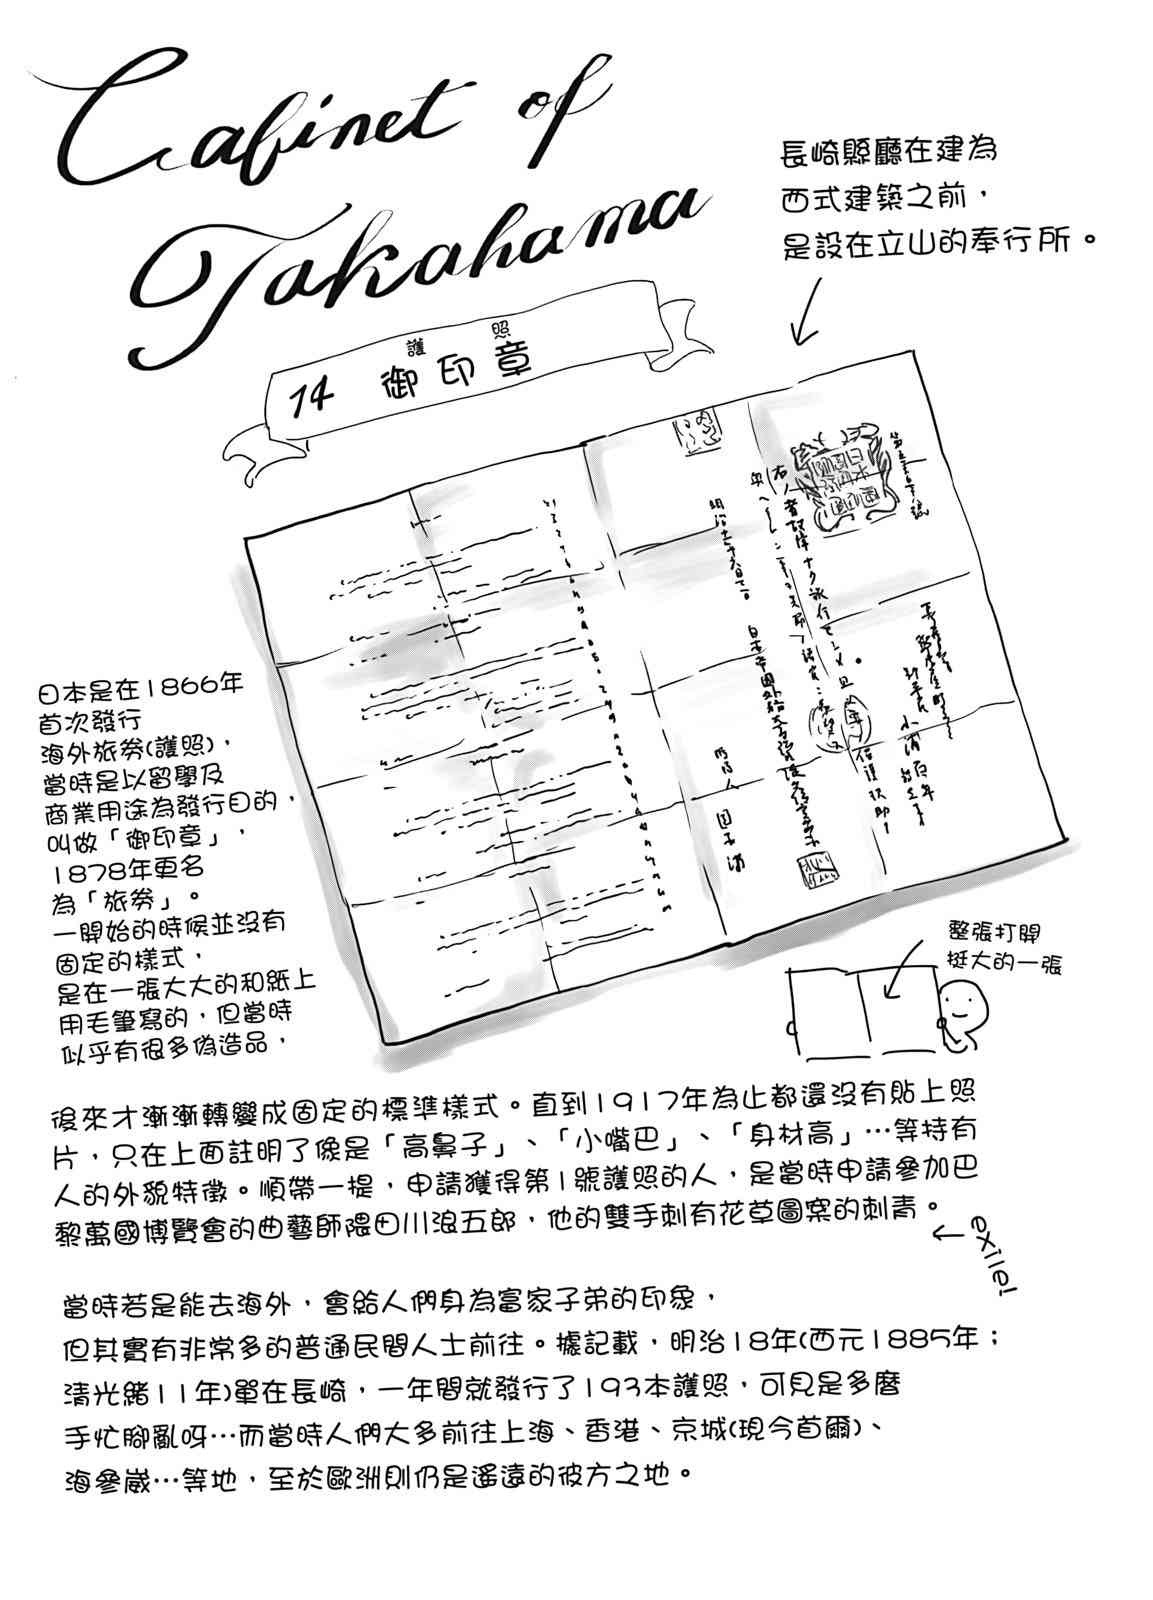 Cabinet of
Takahama
長崎縣廳在建為
西式建築之前，
是設在立山的奉行所。
護照
14 御印章
日本是在1866年
首次發行
海外旅券(護照)，
當時是以留學及
商業用途為發行目的，
叫做「御印章」，
1878年更名
為「旅券」。
一開始的時候並沒有
固定的樣式，
是在一張大大的和紙上
用毛筆寫的，但當時
似乎有很多偽造品，
整張打開
挺大的一張
後來才漸漸轉變成固定的標準樣式。直到1917年為止都還沒有貼上照
片，只在上面註明了像是「高鼻子」、「小嘴巴」、「身材高」…等持有
人的外貌特徵。順帶一提，申請獲得第1號護照的人，是當時申請參加巴
黎萬國博覽會的曲藝師隈田川浪五郎，他的雙手刺有花草圖案的刺青。
exile!
當時若是能去海外，會給人們身為富家子弟的印象，
但其實有非常多的普通民間人士前往。據記載，明治18年(西元1885年；
清光緒11年)單在長崎，一年間就發行了193本護照，可見是多麼
手忙腳亂呀…而當時人們大多前往上海、香港、京城(現今首爾)、
海參崴…等地，至於歐洲則仍是遙遠的彼方之地。